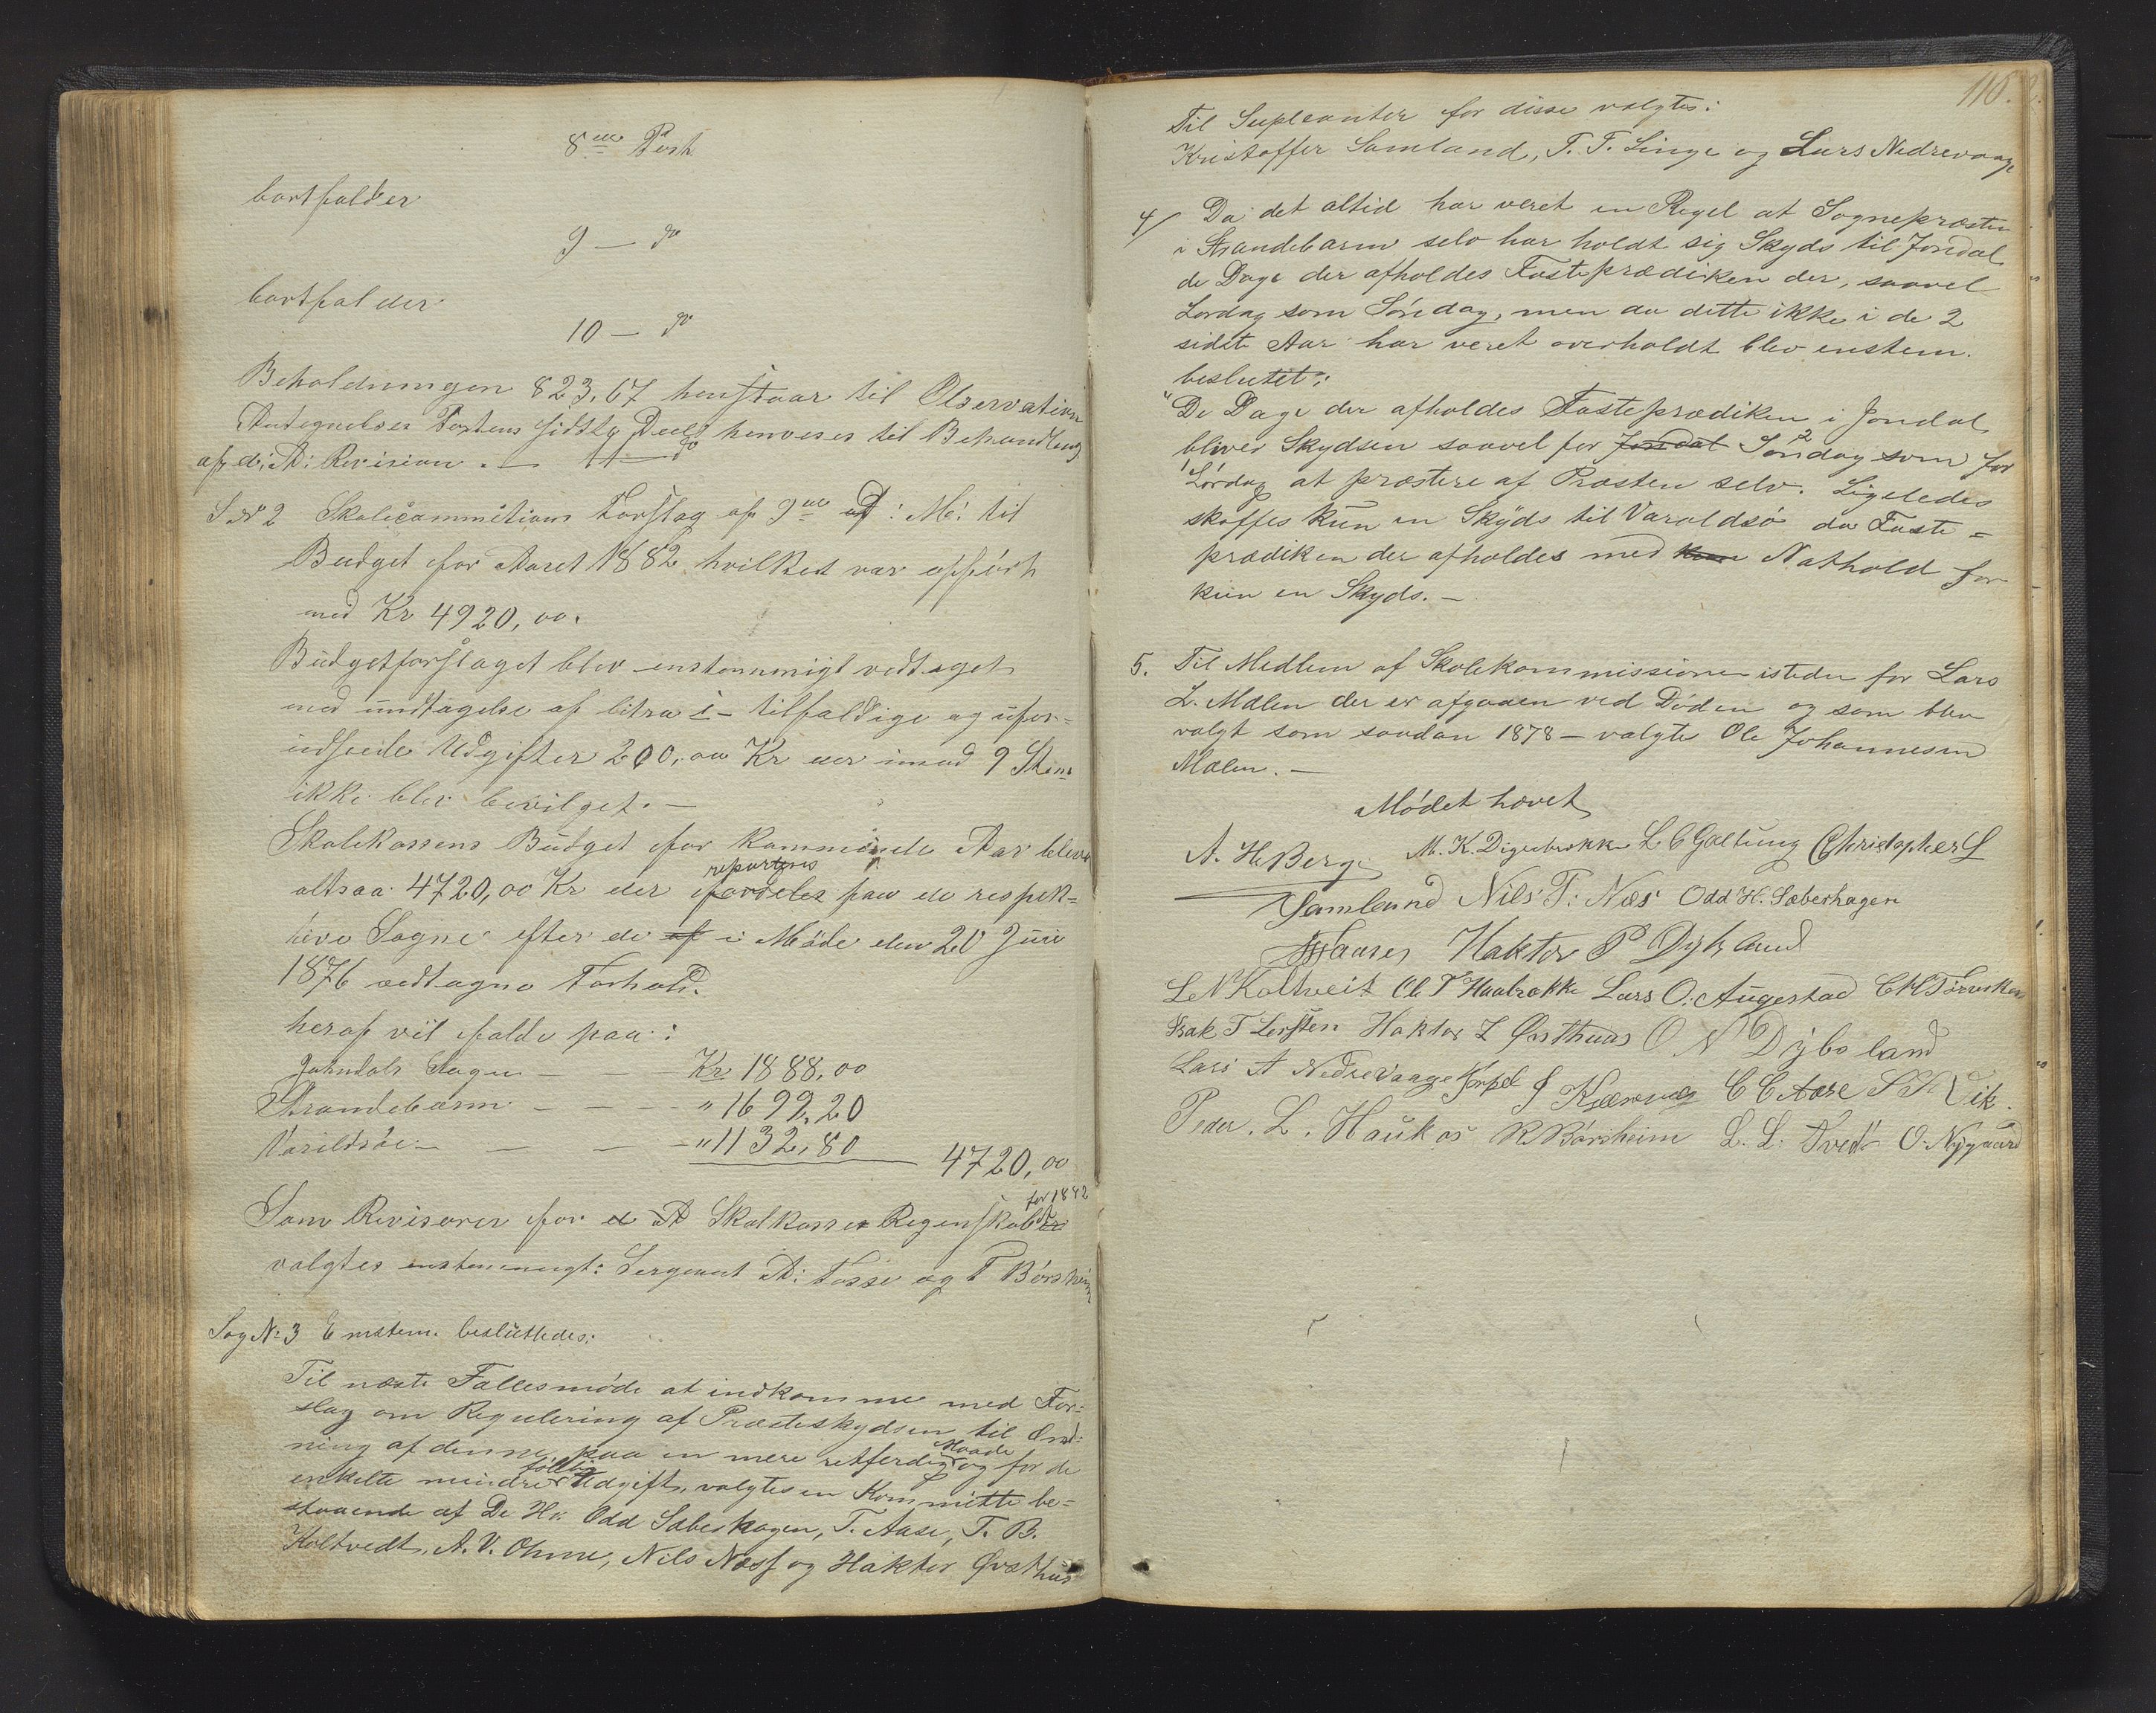 8de Post
bortfalder
9 — do
bortfalder
10 — do
Beholdningen 823,67 henstaar til Observation
Antegnelses Postens sidste Deel henvises til Behandling
af d: A: Revision. — 11 — do
S No 2 Skolecommitions Forslag af 9de d: M: til
Budget for Aaret 1882 hvilket var opført
med Kr 4920,00.
Budgetforslaget blev enstemmigt vedtaget
med undtagelse af litra i – tilfældige og ufor=
udseede Udgifter 200,00 Kr der imod 9 Stem
ikke blev bevilget. —
Skolekassens Budget for kommende Aar bliver
altsaa 4720,00 Kr der fordeles repartgnes paa de respek=
tive Sogne efter de af i Møde den 20 Juni
1876 vedtagne Forhold.
heraf vil falde paa:
Johndals Sogn — — Kr 1888,00
Strandebarm — — — " 1699,20
Varildsøe — — — " 1132,80 4720,00
Som Revisorer for d A Skolkasse Regenskab for 1882
valgtes enstemmigt: Sergeant A: Fosse og T Børsheim
Sag No 3 Enstem. besluttedes:
Til næste Fællesmøde at indkomme med For=
slag om Regulering af Præsteskydsen til Ord=
ning af denne paa en mere retferdig Maade og for de
enkelte mindre følelig Udgift, valgtes en Kommitte be=
staaende af De Hr. Odd Sæberhagen, T. Aase, T. B.
Holtvedt, A. V. Ohme, Nils Næss og Haktor Øvsthus
116.
Til Supleanter for disse valgtes:
Kristoffer Samland, T. T. Linge og Lars Nedrevaage
4/ Da det altid har veret en Regel at Sognepræsten
i Strandebarm selv har holdt sig Skyds til Jondal
de Dage der afholdes Fasteprædiken der, saavel
Lørdag som Søndag, men da dette ikke i de 2
sidste Aar har veret overholdt blev enstem.
beslutet:
"De Dage der afholdes Fasteprædiken i Jondal
bliver Skydsen saavel for Jondal 2 Søndag som for
1 Lørdag at præstere af Præsten selv. Ligeledes
skaffes kun en Skyds til Varaldsø da Faste=
prædiken der afholdes med kun Nathold for
kun en Skyds. —
5. Til Medlem af Skolekommissionen isteden for Lars
L. Mælen der er afgaaen ved Døden og som blev
valgt som saadan 1878 — valgtes Ole Johannesen
Mælen. —
Mødet hævet
A. H. Berge M. K. Digrebrække L C Galtung Christopher L
Samland Nils T: Næs Odd H. Sæberhagen
Haktor P Dysland
L N Koltveit Ole T Haabrække Lars O. Augestad
Isak T Lersten Haktor L Østhuus O N Dybsland
Lars A Nedrevaage Torpel J Kjærevig C C Aase S S Vik.
Peder. L. Haukas R Børsheim L. L. Tvedt O. Nygaard